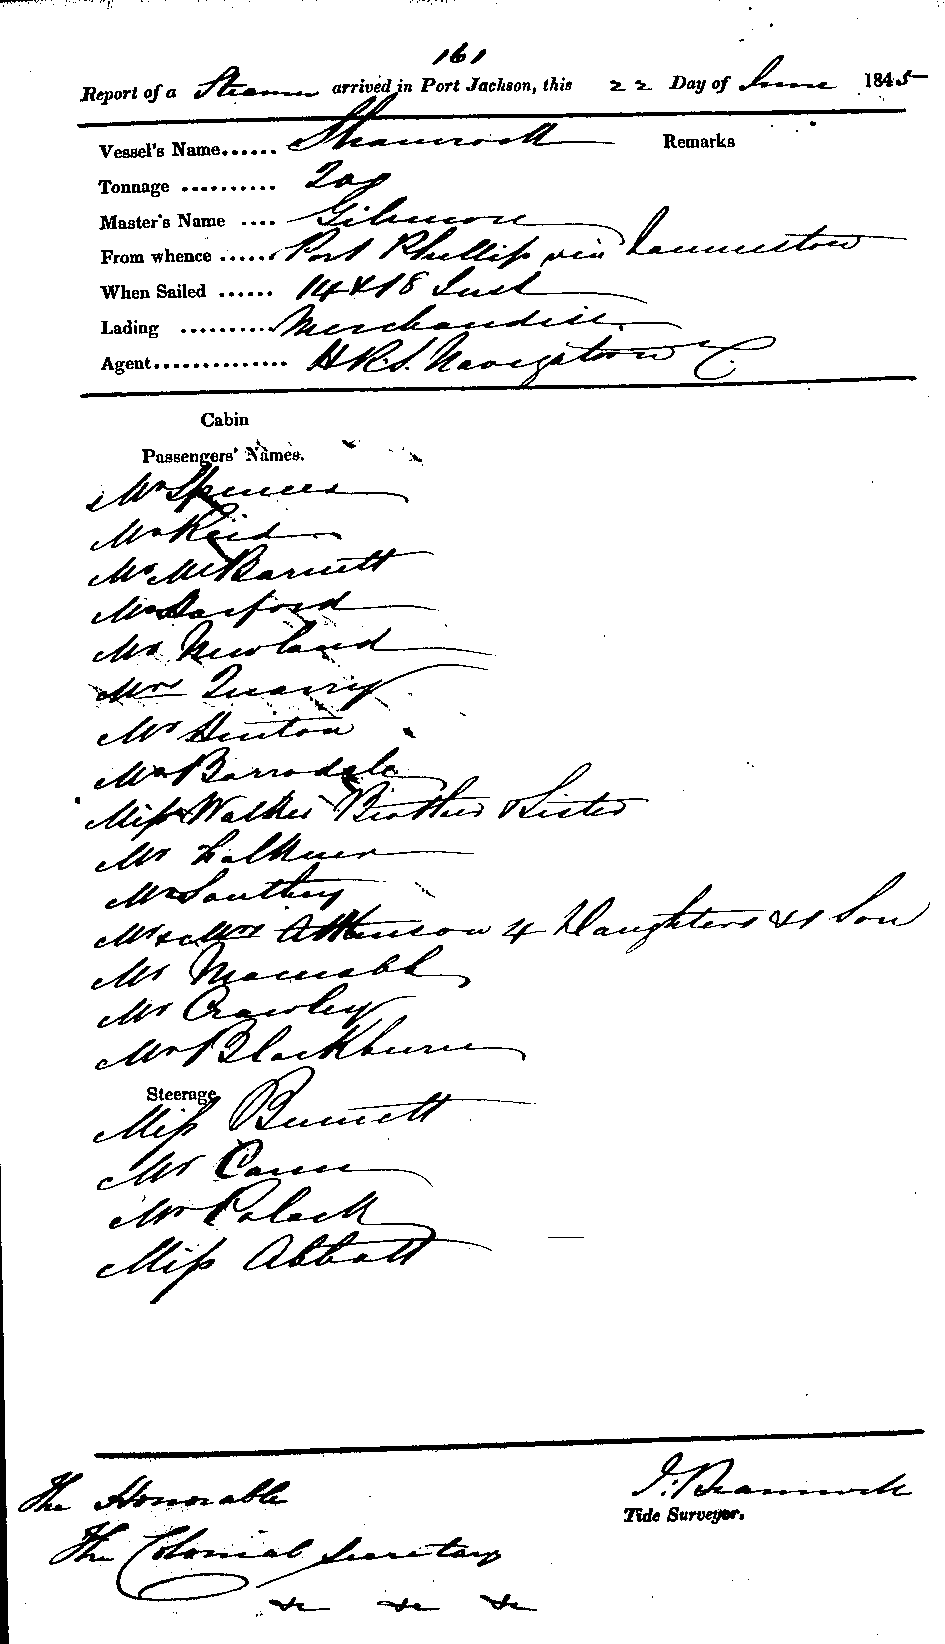 161
Report of a Steamer arrived in Port Jackson, this 22 Day of June 1845
Vessel's Name...... Shamrock Remarks
Tonnage .......... 200
Master's Name .... Gilmore
From whence ...... Port Phillip via Launceston
When Sailed ...... 14 & 18 Inst
Lading .......... Merchandise.
Agent.............. H.R.S. Navigation C.
Cabin
Passengers' Names.
Mr Spences
Mr Reid
Mr McBarnett
Mr
Mr Newland
Mrs Quarry
Mr Hinton
Mr Barrodale
Miss Walker Brother & Sister
Mr Falkner
Mr Southey
Mr & Mrs Atkinson 4 Daughters & 1 Son
Mr
Mr Crawley
Mr Blackburn
Steerage
Miss Burnett
Mr Cann
Mr Polack
Miss Abbott
The Honorable
J: Brannock
Tide Surveyor.
The Colonial Secretary
&c &c &c